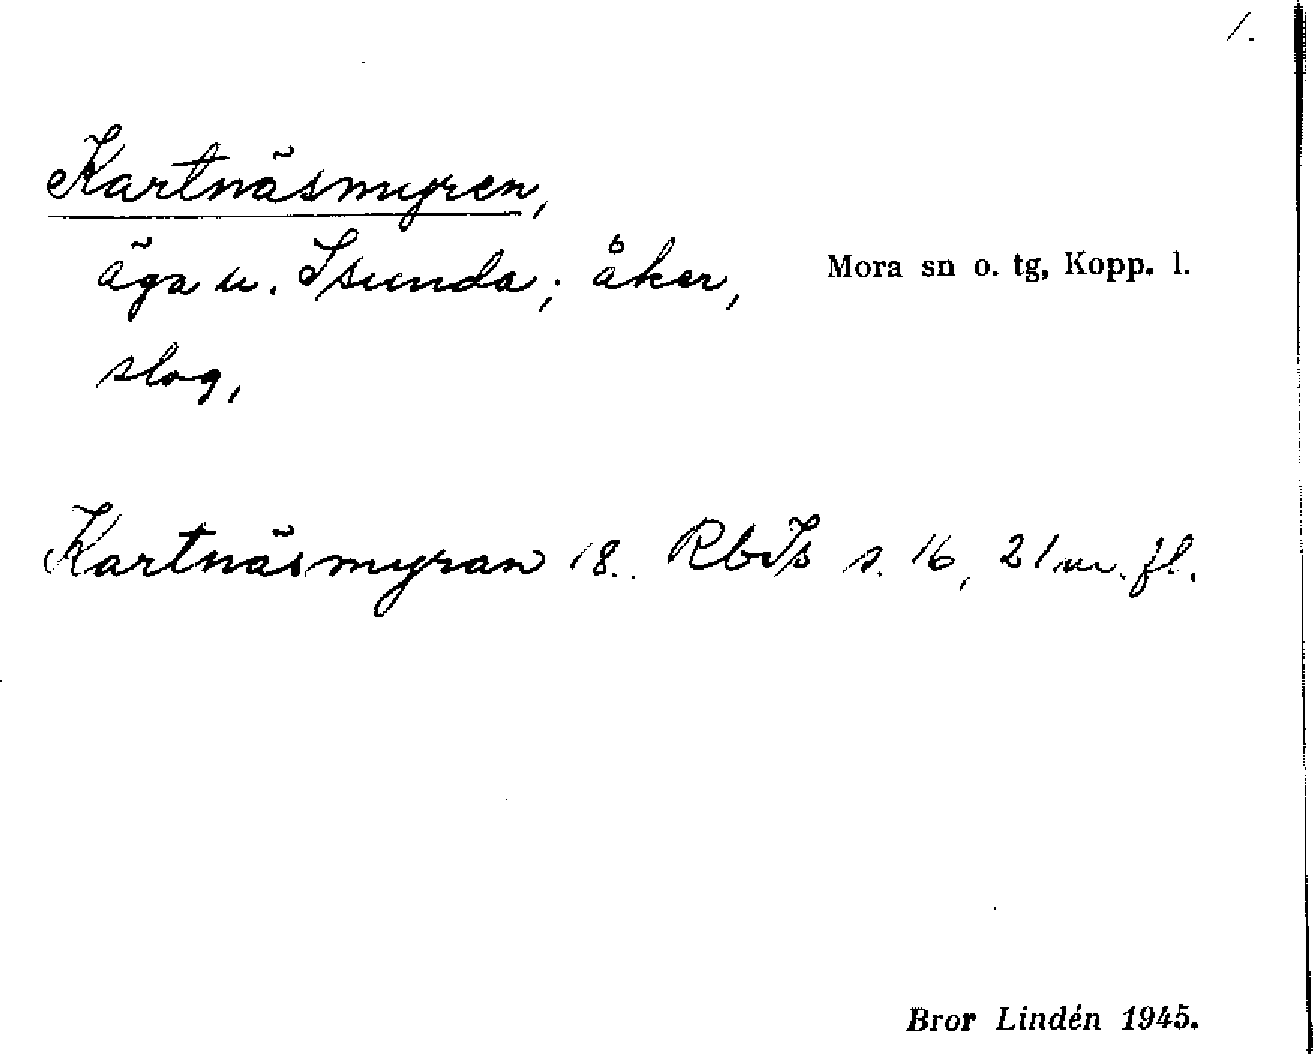 1.
Kartnäsmyren,
äga u. Isunda; åker, Mora sn o. tg, Kopp. l.
slog,
Kartnäsmyran 18.. RbIs s. 16, 21 m. fl.
Bror Lindén 1945.